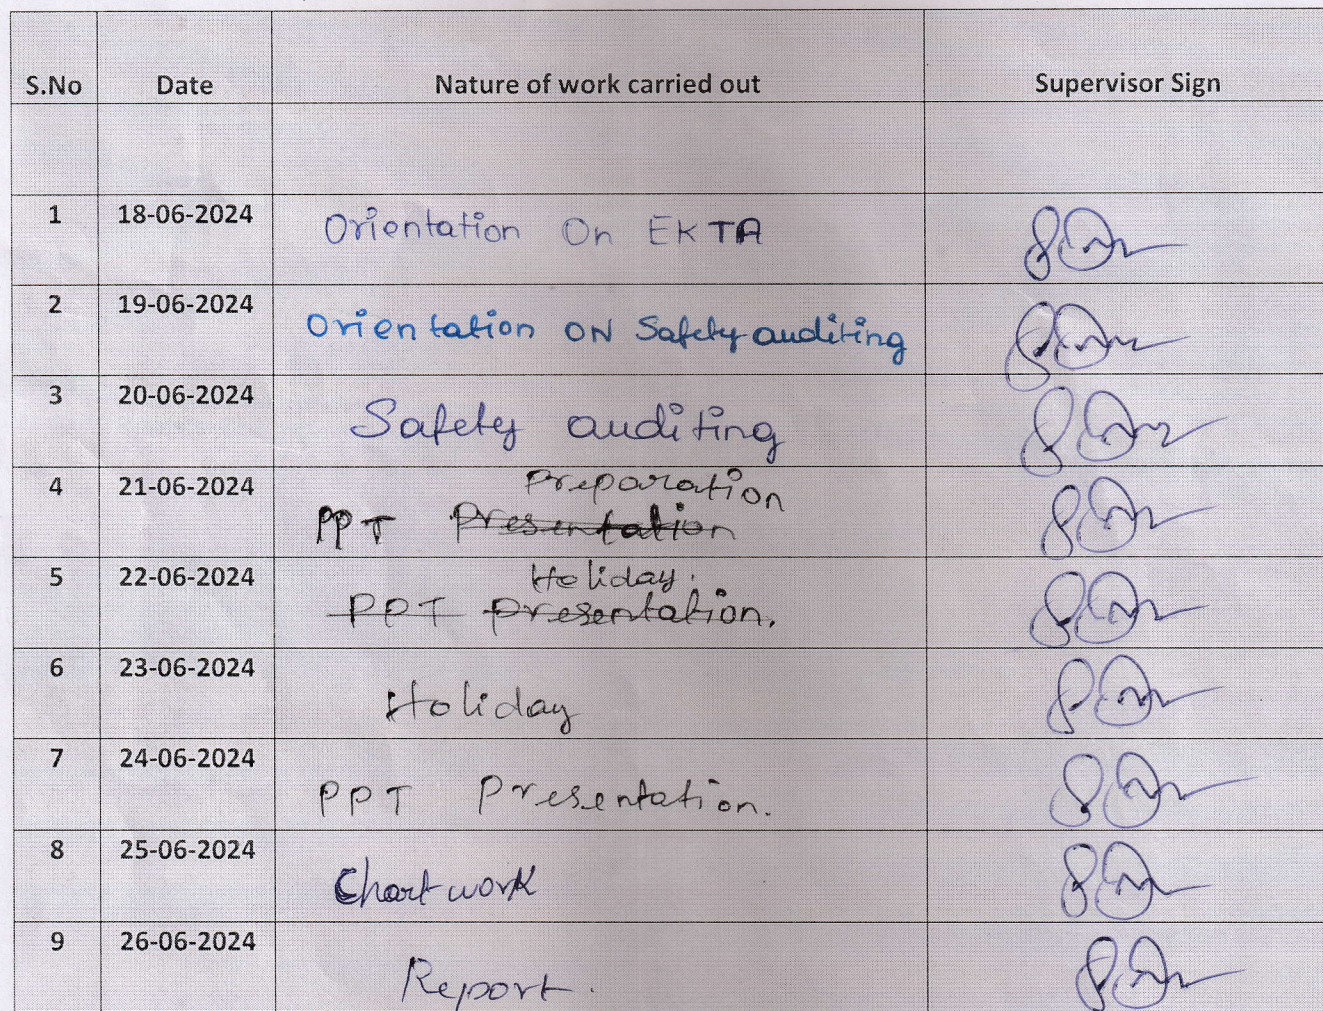 S.No Date Nature of work carried out Supervisor Sign
1 18-06-2024 Orientation On EKTA
2 19-06-2024 Orientation ON Safety auditing
3 20-06-2024 Safety auditing
4 21-06-2024 Preparation
PPT Presentation
5 22-06-2024 Holiday.
PPT Presentation.
6 23-06-2024 Holiday
7 24-06-2024 PPT Presentation.
8 25-06-2024 Chart work
9 26-06-2024 Report.